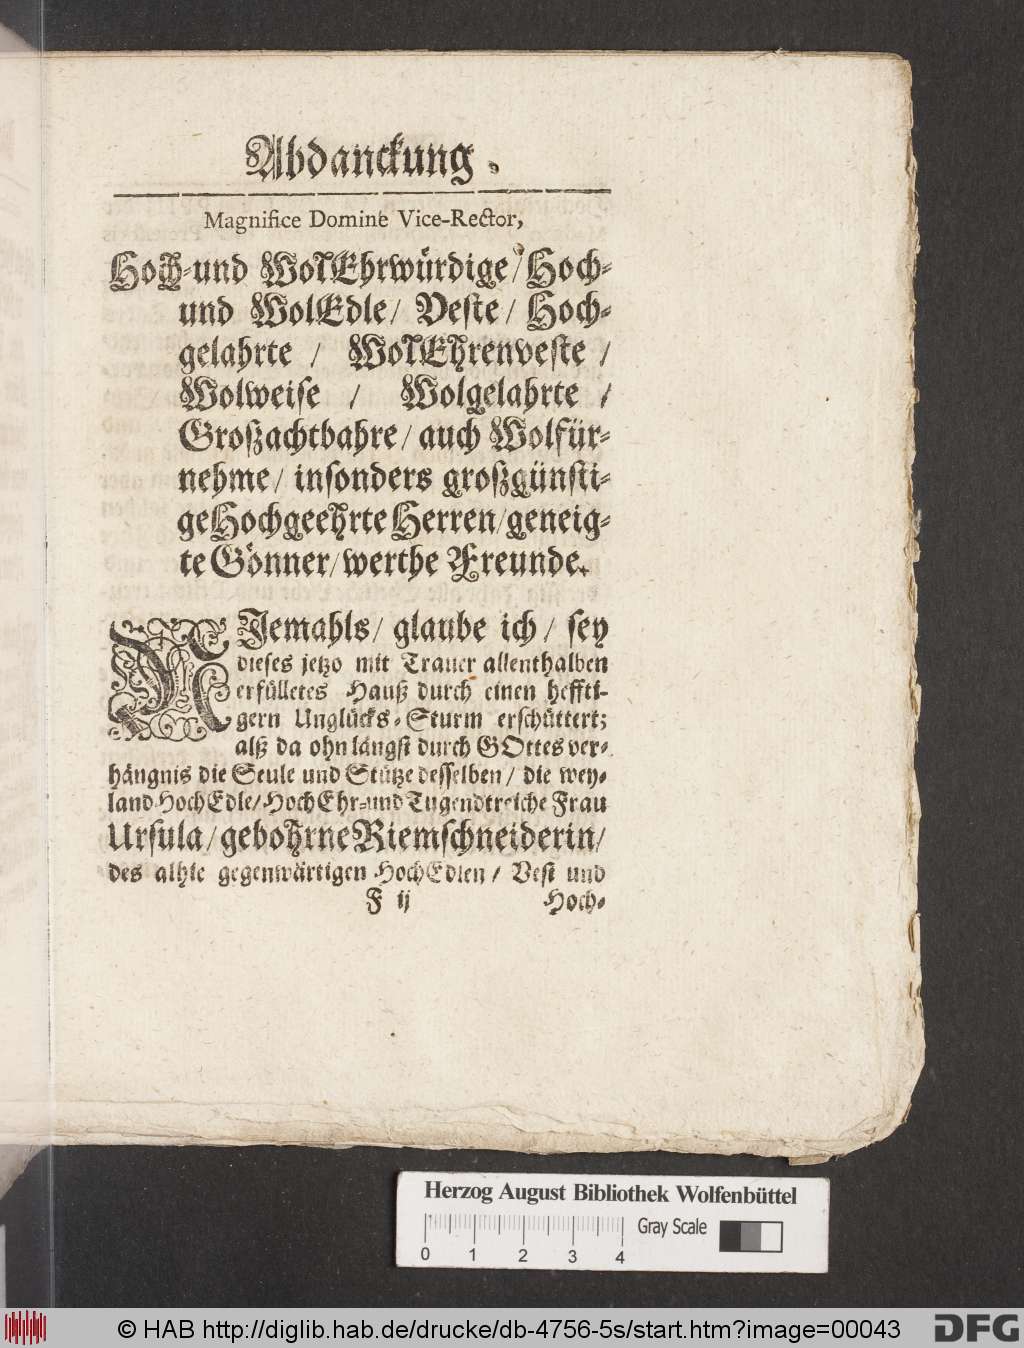 Abdanckung.
Magnifice Domine Vice-Rector,
Hoch-und WolEhrwürdige/Hoch-
und WolEdle/ Veste/ Hoch-
gelahrte / WolEhrenveste /
Wolweise / Wolgelahrte /
Großachtbahre/ auch Wolfür-
nehme/ insonders großgünsti-
geHochgeehrte Herren/geneig-
te Gönner/werthe Freunde.
NJemahls/ glaube ich/ sey
dieses jetzo mit Trauer allenthalben
erfülletes Hauß durch einen heffti-
gern Unglücks-Sturm erschüttert;
alß da ohnlängst durch GOttes ver-
hängnis die Seule und Stütze desselben/ die wey-
land HochEdle/HochEhr-und Tugendtreiche Frau
Ursula/gebohrne Riemschneiderin/
des alhie gegenwärtigen HochEdlen/ Vest und
F ij Hoch-
Herzog August Bibliothek Wolfenbüttel
Gray Scale
0 1 2 3 4
© HAB http://diglib.hab.de/drucke/db-4756-5s/start.htm?image=00043
DFG